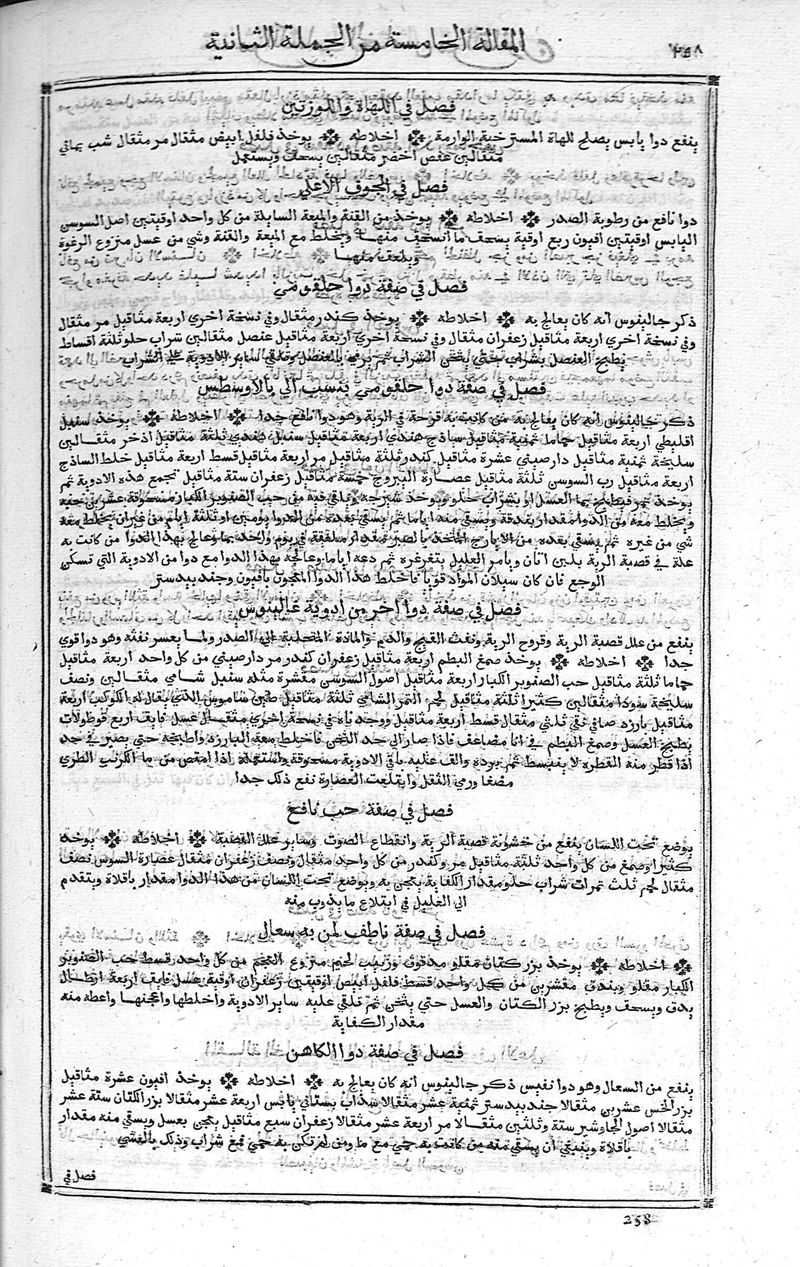 ٢٥٨
المقالة الخامسة من الجملة الثانية
فصل في اللهاة واللوزتين
ينفع دوا يابس يصلح للهاة المسترخية الوارمة اخلاطه يوخذ فلفل ابيض مثقال مر مثقال شب يماني
مثقالين عفص اخضر مثقالين يسحف ويستعمل
فصل في الجوف الاعلي
دوا نافع من رطوبة الصدر اخلاطه يوخذ من القنة والميعة السايلة من كل واحد اوقيتين اصل السوسي
اليابس اوقيتين افيون ربع اوقية يسحف ما انسحف منها ويخلط مع الميعة والقنة وشي من عسل منزوع الرغوة
ويلعف منها
فصل في صفة دوا حلقومي
ذكر جالينوس انه كان يعالج به اخلاطه يوخذ كندر مثقال وفي نسخة اخري اربعة مثاقيل مر مثقال
وفي نسخة اخري اربعة مثاقيل زعفران مثقال وفي نسخة اخري اربعة مثاقيل عنصل مثقالين شراب حلو ثلثة اقساط
يطبخ العنصل بشراب حتي يثخن الشراب ثم يرمي بالعنصل وتلقي ساير الادوية علي الشراب
فصل في صفة دوا حلقومي ينسب الي بالاوسطس
ذكر جالينوس انه كان يعالج به من كانت به قرحة في الرية وهو دوا نافع جدا اخلاطه يوخذ سنبل
اقليطي اربعة مثاقيل حماما ثمنية مثاقيل ساذج هندي اربعة مثاقيل سنبل هندي ثلثة مثاقيل اذخر مثقالين
سليخة ثمنية مثاقيل دارصيني عشرة مثاقيل كندر ثلثة مثاقيل مر اربعة مثاقيل قسط اربعة مثاقيل خلط الساذج
اربعة مثاقيل رب السوسي ثلثة مثاقيل عصارة اليبروج خمسة مثاقيل زعفران ستة مثاقيل تجمع هذه الادوية ثم
يوخذ تمر فيطبخ بما العسل او بشراب حلو ويوخذ شيرجه ويلقي فيه من حب الصنوبر الكبار مسحوقة عشرين حبة
ويخلط معه من الدوا مقدار بندقة ويسقي منه اياما ثم يسقي بعده من الدوا يومين او ثلثة ايام من غير ان يخلط معه
شي من غيره ثم يسقي بعده من الايارج المتخذ بالصبر مقدار ملعقة في يوم واحد بما وعالج بهذا الدوا من كانت به
علة في قصبة الرية بلبن اتان ويامر العليل بتغرغره ثم دعه اياما وعالجه بهذا الدوا مع دوا من الادوية التي تسكن
الوجع فان كان سيلان المواد قويا فاخلط هذا الدوا المعجون بافيون وجندبيدستر
فصل في صفة دوا اخر من ادوية غالينوس
ينفع من علل قصبة الرية وقروح الرية ونفث القيح والدم والمادة المتحلبة الي الصدر ولما يعسر نفثه وهو دوا قوي
جدا اخلاطه يوخذ صمغ البطم اربعة مثاقيل زعفران كندر مر دارصيني من كل واحد اربعة مثاقيل
حماما ثلثة مثاقيل حب الصنوبر الكبار اربعة مثاقيل اصول السوسي مقشرة مثله سنبل شامي مثقالين ونصف
سليخة سودا مثقالين كثيرا ثلثة مثاقيل لحم التمر الشامي ثلثة مثاقيل طين ساموس الذي يقال له الكوكب اربعة
مثاقيل بارزد صافي نقي ثلثي مثقال قسط اربعة مثاقيل ووجدناه في نسخة اخري مثقال عسل فايف اربع قوطولات
يطبخ العسل وصمغ البطم في انا مضاعف فاذا صار الي حد الثخن فاخلط معه البارزد واطبخه حتي يصير في حد
اذا قطر منه القطرة لا ينبسط ثم برده والف عليه باقي الادوية مسحوقة واستعمله اذا امتص من ما الكرنب الطري
مصفا ورمي الثفل وابتلعت العصارة نفع ذلك جدا
فصل في صفة حب نافع
يوضع تحت اللسان ينفع من خشونة قصبة الرية وانقطاع الصوت وساير علل القصبة اخلاطه يوخذ
كثيرا وصمغ من كل واحد ثلثة مثاقيل مر وكندر من كل واحد مثقال ونصف زعفران مثقال عصارة السوس نصف
مثقال لحم ثلث تمرات شراب حلو مقدار الكفاية يعجن به ويوضع تحت اللسان من هذا الدوا مقدار باقلاة ويتقدم
الي العليل في ابتلاع ما يذوب منه
فصل في صفة ناطف لمن به سعال
اخلاطه يوخذ بزر كتان مقلو مدقوق وزبيب لحيم منزوع العجم من كل واحد قسط حب الصنوبر
الكبار مقلو وبندق مقشرين من كل واحد قسط فلفل ابيض اوقيتين زعفران اوقية عسل فايف اربعة ارطال
يدق ويسحف ويطبخ بزر الكتان والعسل حتي يثخن ثم تلقي عليه ساير الادوية واخلطها واعجنها واعطه منه
مقدار الكفاية
فصل في صفة دوا الكاهن
ينفع من السعال وهو دوا نفيس ذكر جالينوس انه كان يعالج به اخلاطه يوخذ افيون عشرة مثاقيل
بزر الخس عشرين مثقالا جندبيدستر ثمنية عشر مثقالا سذاب بستاني يابس اربعة عشر مثقالا بزر الكتان ستة عشر
مثقالا اصول الجاوشير ستة وثلثين مثقالا مر اربعة عشر مثقالا زعفران سبع مثاقيل يعجن بعسل ويسقي منه مقدار
باقلاة وينبغي ان يسقي منه من كانت به حمي مع ما ومن لم تكن به حمي فمع شراب وذلك بالعشي
فصل في
258